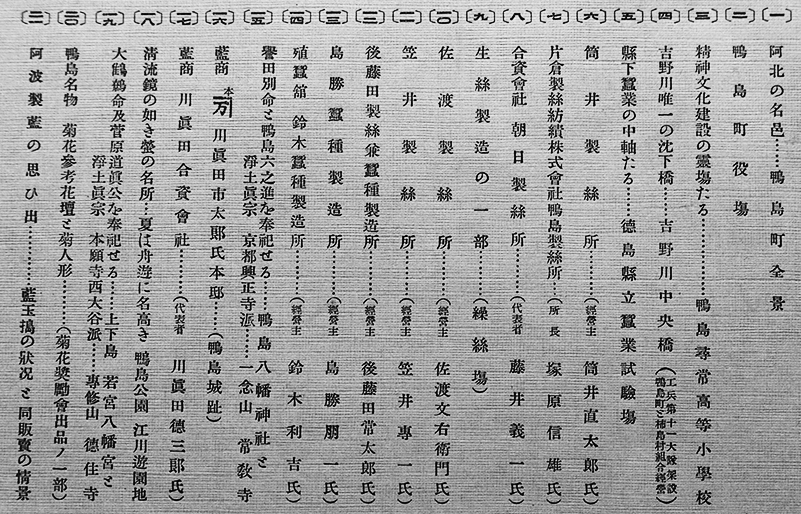 〔一〕 阿北の名邑……鴨島町全景
〔二〕 鴨島町役場
〔三〕 精神文化建設の靈場たる………鴨島尋常高等小學校
〔四〕 吉野川唯一の沈下橋……吉野川中央橋（工兵第十一大隊架設 鴨島町と柿島村組合經營）
〔五〕 縣下蠶業の中軸たる……德島縣立蠶業試驗場
〔六〕 筒井製絲所………（經營主 筒井直太郞氏）
〔七〕 片倉製絲紡績株式會社鴨島製絲所…（所長 塚原信雄氏）
〔八〕 合資會社 朝日製絲所………（代表者 藤井義一氏）
〔九〕 生絲製造の一部………（繰絲場）
〔一〇〕 佐渡製絲所………（經營主 佐渡文右衛門氏）
〔一一〕 笠井製絲所………（經營主 笠井專一氏）
〔一二〕 後藤田製絲兼蠶種製造所……（經營主 後藤田常太郞氏）
〔一三〕 島勝蠶種製造所………（經營主 島勝朋一氏）
〔一四〕 殖蠶舘 鈴木蠶種製造所……（經營主 鈴木利吉氏）
〔一五〕 譽田別命と鴨島六之進を奉祀せる……鴨島八幡神社と
淨土眞宗 京都興正寺派……一念山 常敎寺
〔一六〕 藍商 本 川眞田市太郞氏本邸……（鴨島城趾）
〔一七〕 藍商 川眞田合資會社………（代表者 川眞田德三郞氏）
〔一八〕 淸流鏡の如き螢の名所…夏は舟遊に名高き 鴨島公園 江川遊園地
〔一九〕 大鷦鷯命及菅原道眞公を奉祀せる……上下島 若宮八幡宮と
淨土眞宗 本願寺西大谷派……專修山 德住寺
〔二〇〕 鴨島名物 菊花參考花壇と菊人形………（菊花奬勵會出品ノ一部）
〔二一〕 阿波製藍の思ひ出…………藍玉搗の狀況と同販賣の情景